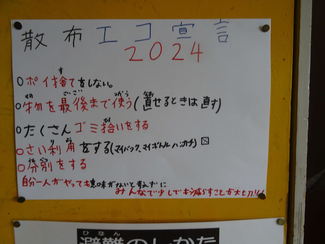 散布エコ宣言
2024
○ポイ捨てをしない。
○物を最後まで使う(直せるときは直す)
○たくさんゴミ拾いをする
○さい利用をする(マイバック、マイボトル、ハンカチ)
○分別をする
自分一人がやっても意味がないと思わずに
みんなで少しでも減らすことが大切!!
ひなん
避難のしかた